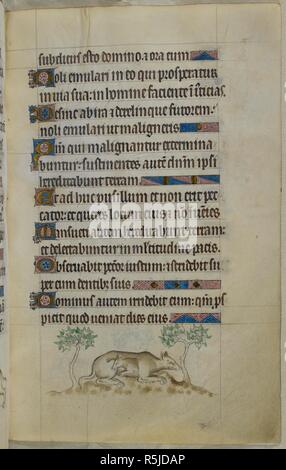 subditus esto domino: et ora eum
Noli emulari in eo qui prosperatur
in via sua: in homine faciente iusticias
Desine ab ira et derelinque furorem:
noli emulari ut maligneris
Qm qui malignantur extermina
buntur: sustinentes autem dnm ipsi
hereditabunt terram
Et adhuc pusillum et non erit pec
cator: et queres locum eius et non inuenies
Mansueti autem hereditabunt terram:
et delectabuntur in multitudine pacis
Obseruabit peccator iustum: et stridebit su
per eum dentibus suis
Dominus autem irridebit eum: qm pros
picit quod ueniat dies eius
alamy
Image ID: R5JDAP
www.alamy.com